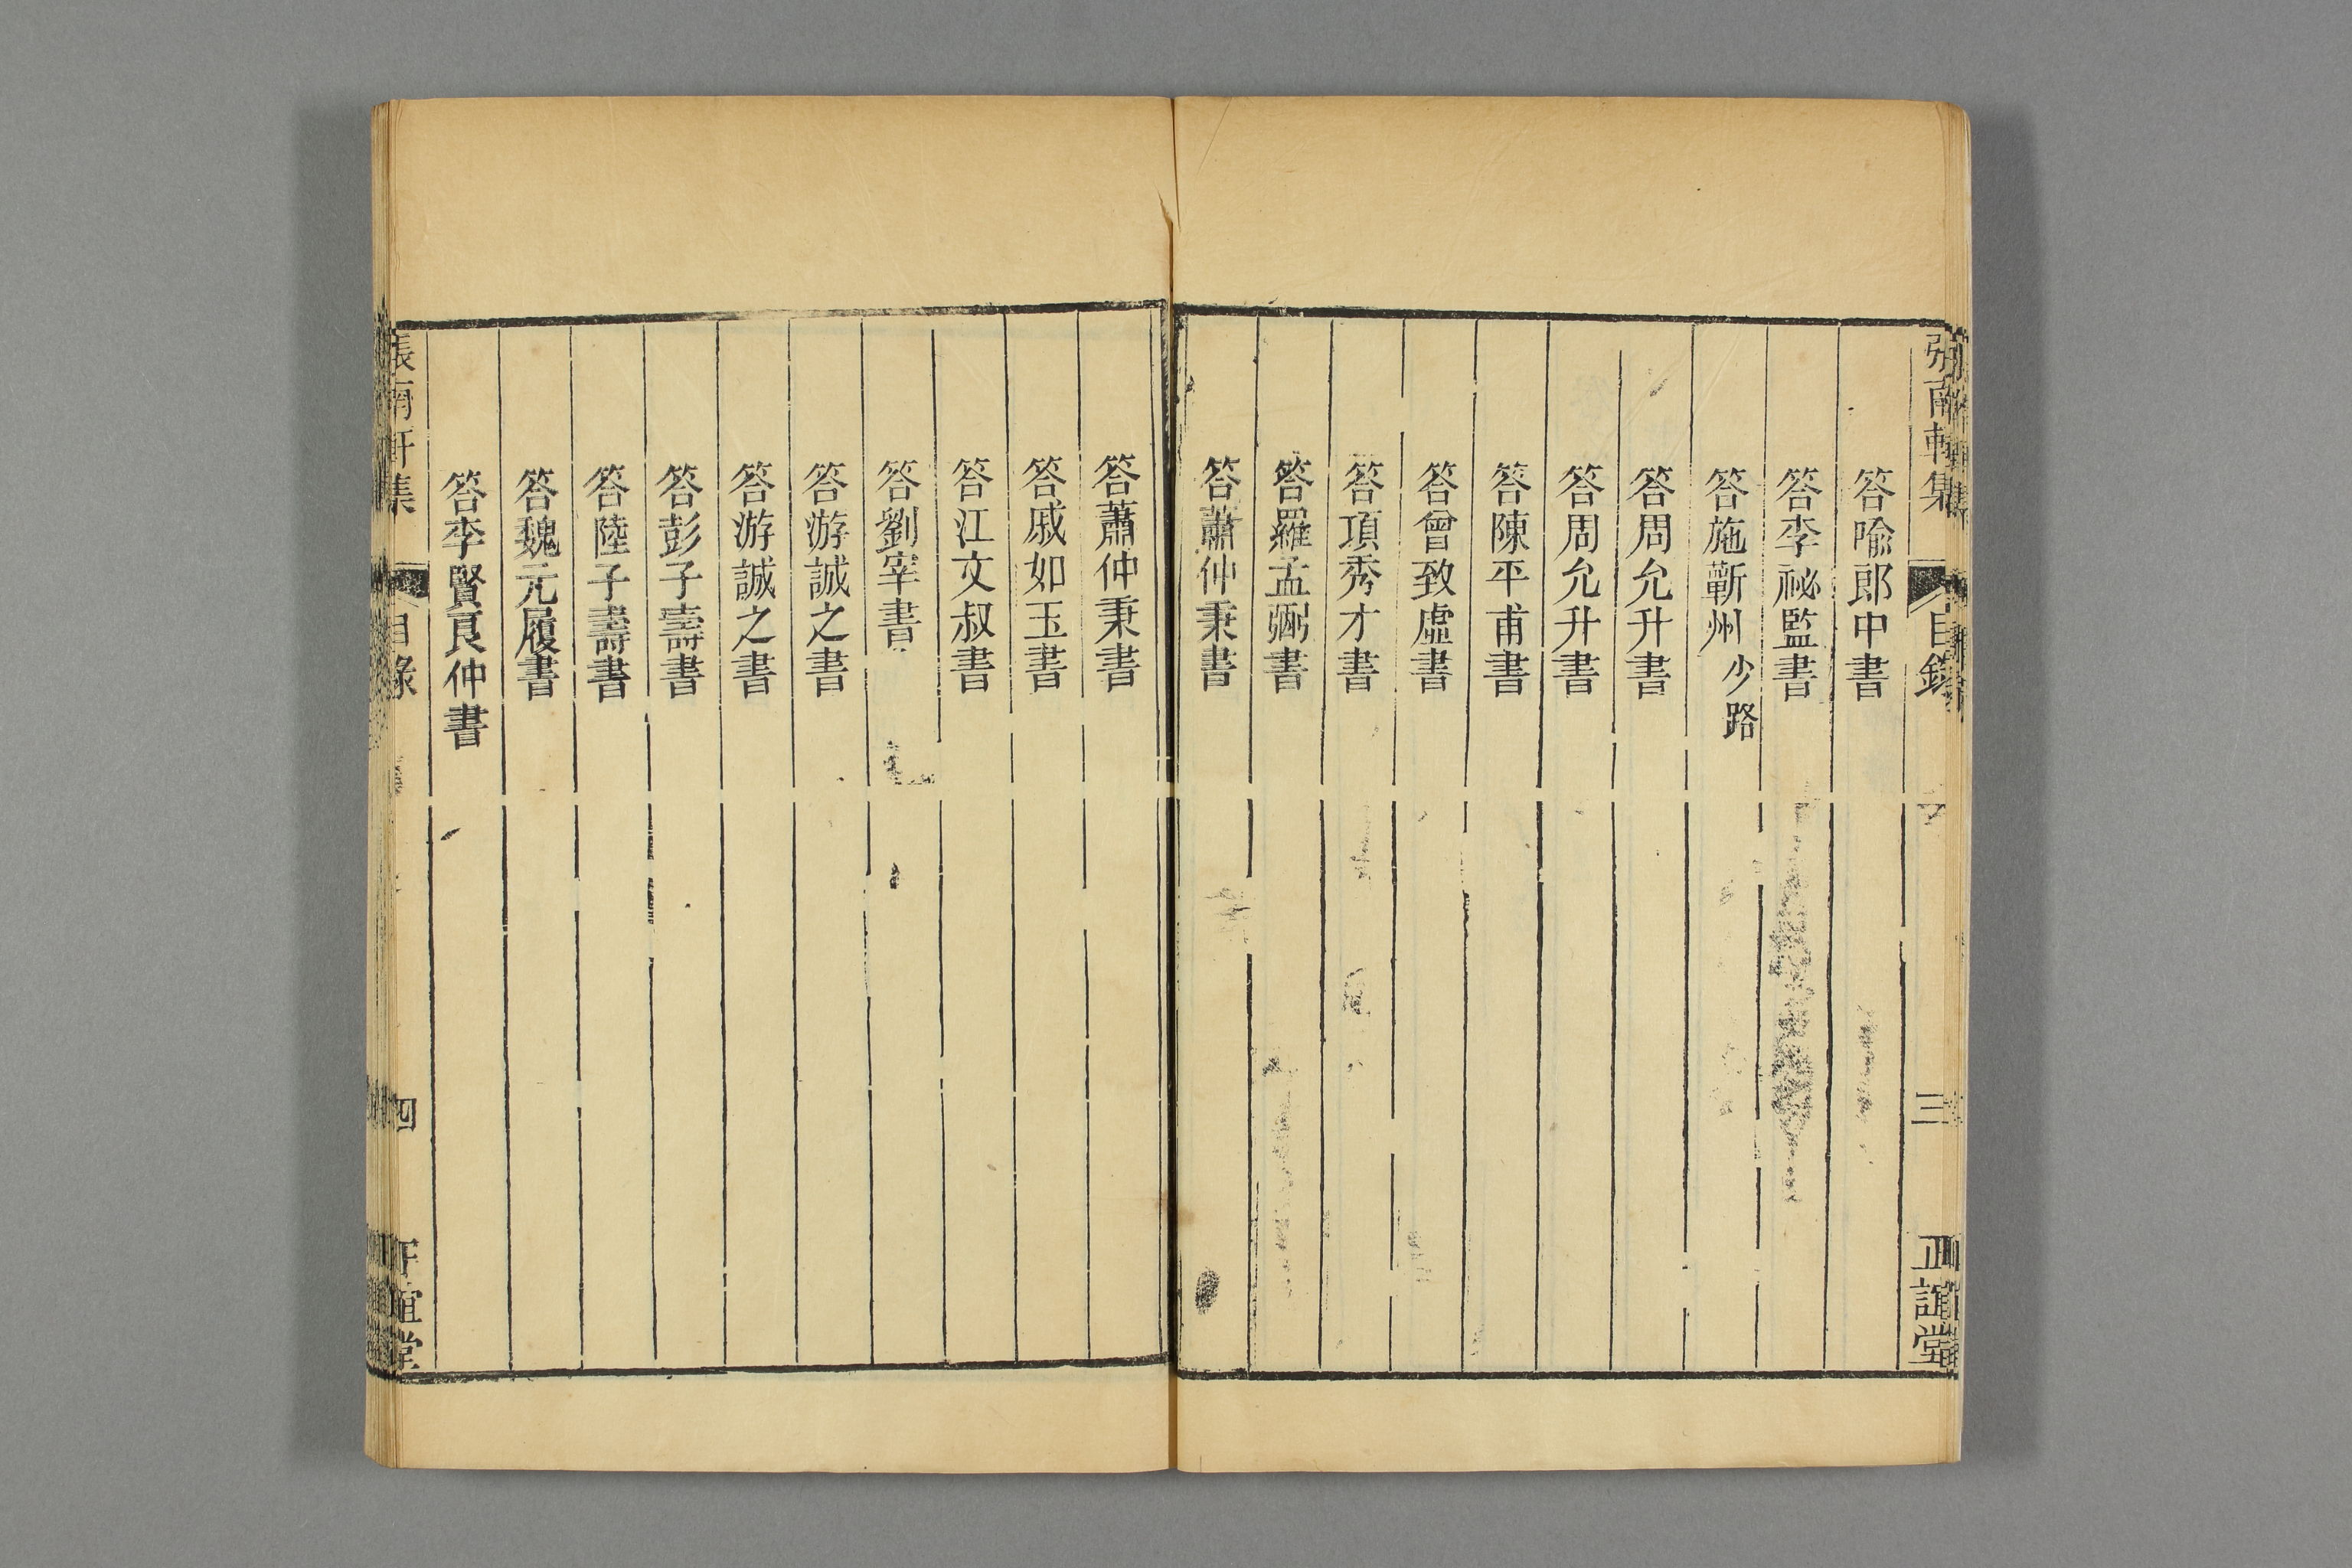 張南軒集 目錄 三 正誼堂
答喻郎中書
答李祕監書
答施蘄州少路
答周允升書
答周允升書
答陳平甫書
答曾致虛書
答項秀才書
答羅孟弼書
答蕭仲秉書
答蕭仲秉書
答戚如玉書
答江文叔書
答劉宰書
答游誠之書
答游誠之書
答彭子壽書
答陸子壽書
答魏元履書
答李賢良仲書
張南軒集 目錄 四 正誼堂